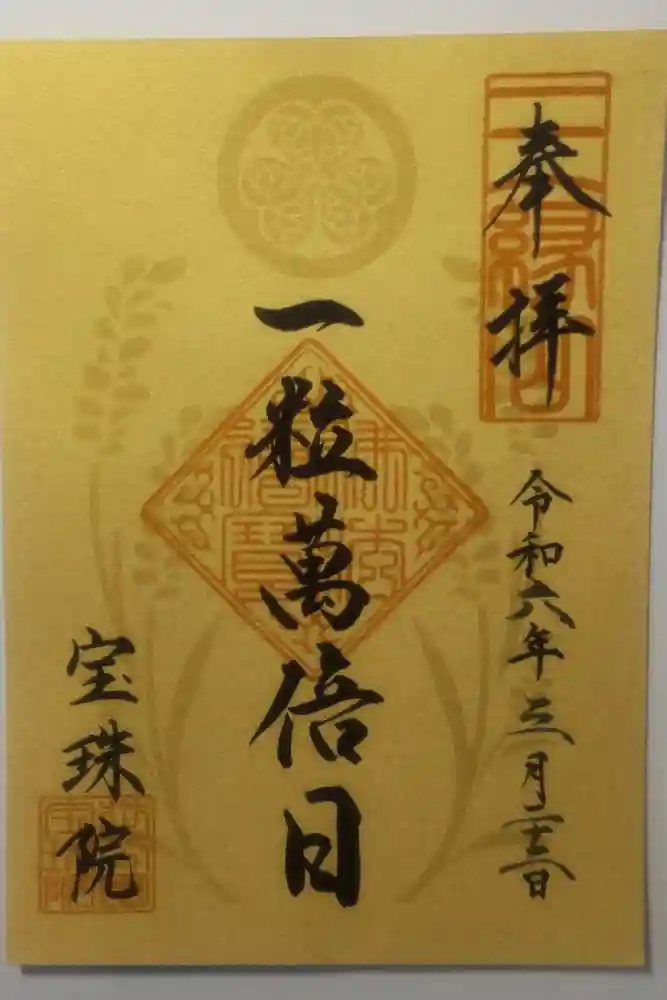 奉拝
令和六年三月二十二日
一粒萬倍日
宝珠院